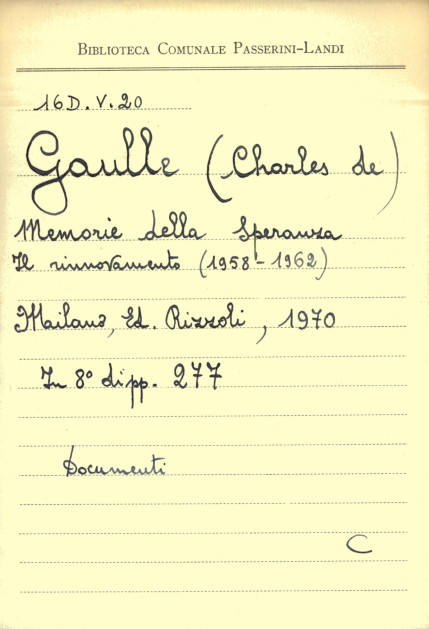 BIBLIOTECA COMUNALE PASSERINI-LANDI
16D.V.20
Gaulle (Charles de)
Memorie della Speranza
Il rinnovamento (1958-1962)
Milano, Ed. Rizzoli, 1970
In 8° di pp. 277
Documenti
C